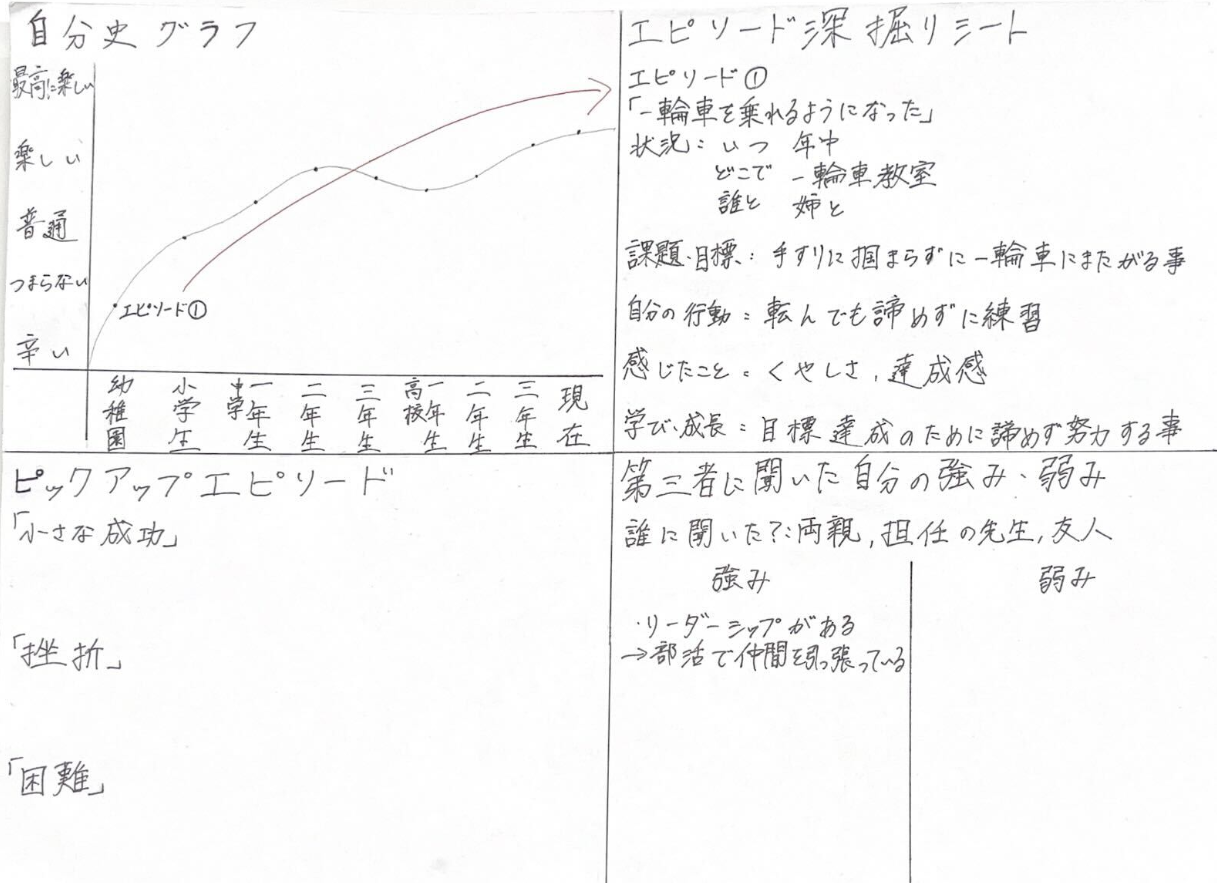 自分史グラフ
最高に楽しい
楽しい
普通
つまらない
辛い
エピソード①
幼稚園
小学生
中学一年生
二年生
三年生
高校一年生
二年生
三年生
現在
エピソード深掘りシート
エピソード①
「一輪車を乗れるようになった」
状況:いつ 年中
どこで 一輪車教室
誰と 姉と
課題・目標:手すりに掴まらずに一輪車にまたがる事
自分の行動:転んでも諦めずに練習
感じたこと:くやしさ,達成感
学び・成長:目標達成のために諦めず努力する事
ピックアップエピソード
「小さな成功」
「挫折」
「困難」
第三者に聞いた自分の強み・弱み
誰に聞いた?:両親,担任の先生,友人
強み
・リーダーシップがある
→部活で仲間を引っ張っている
弱み